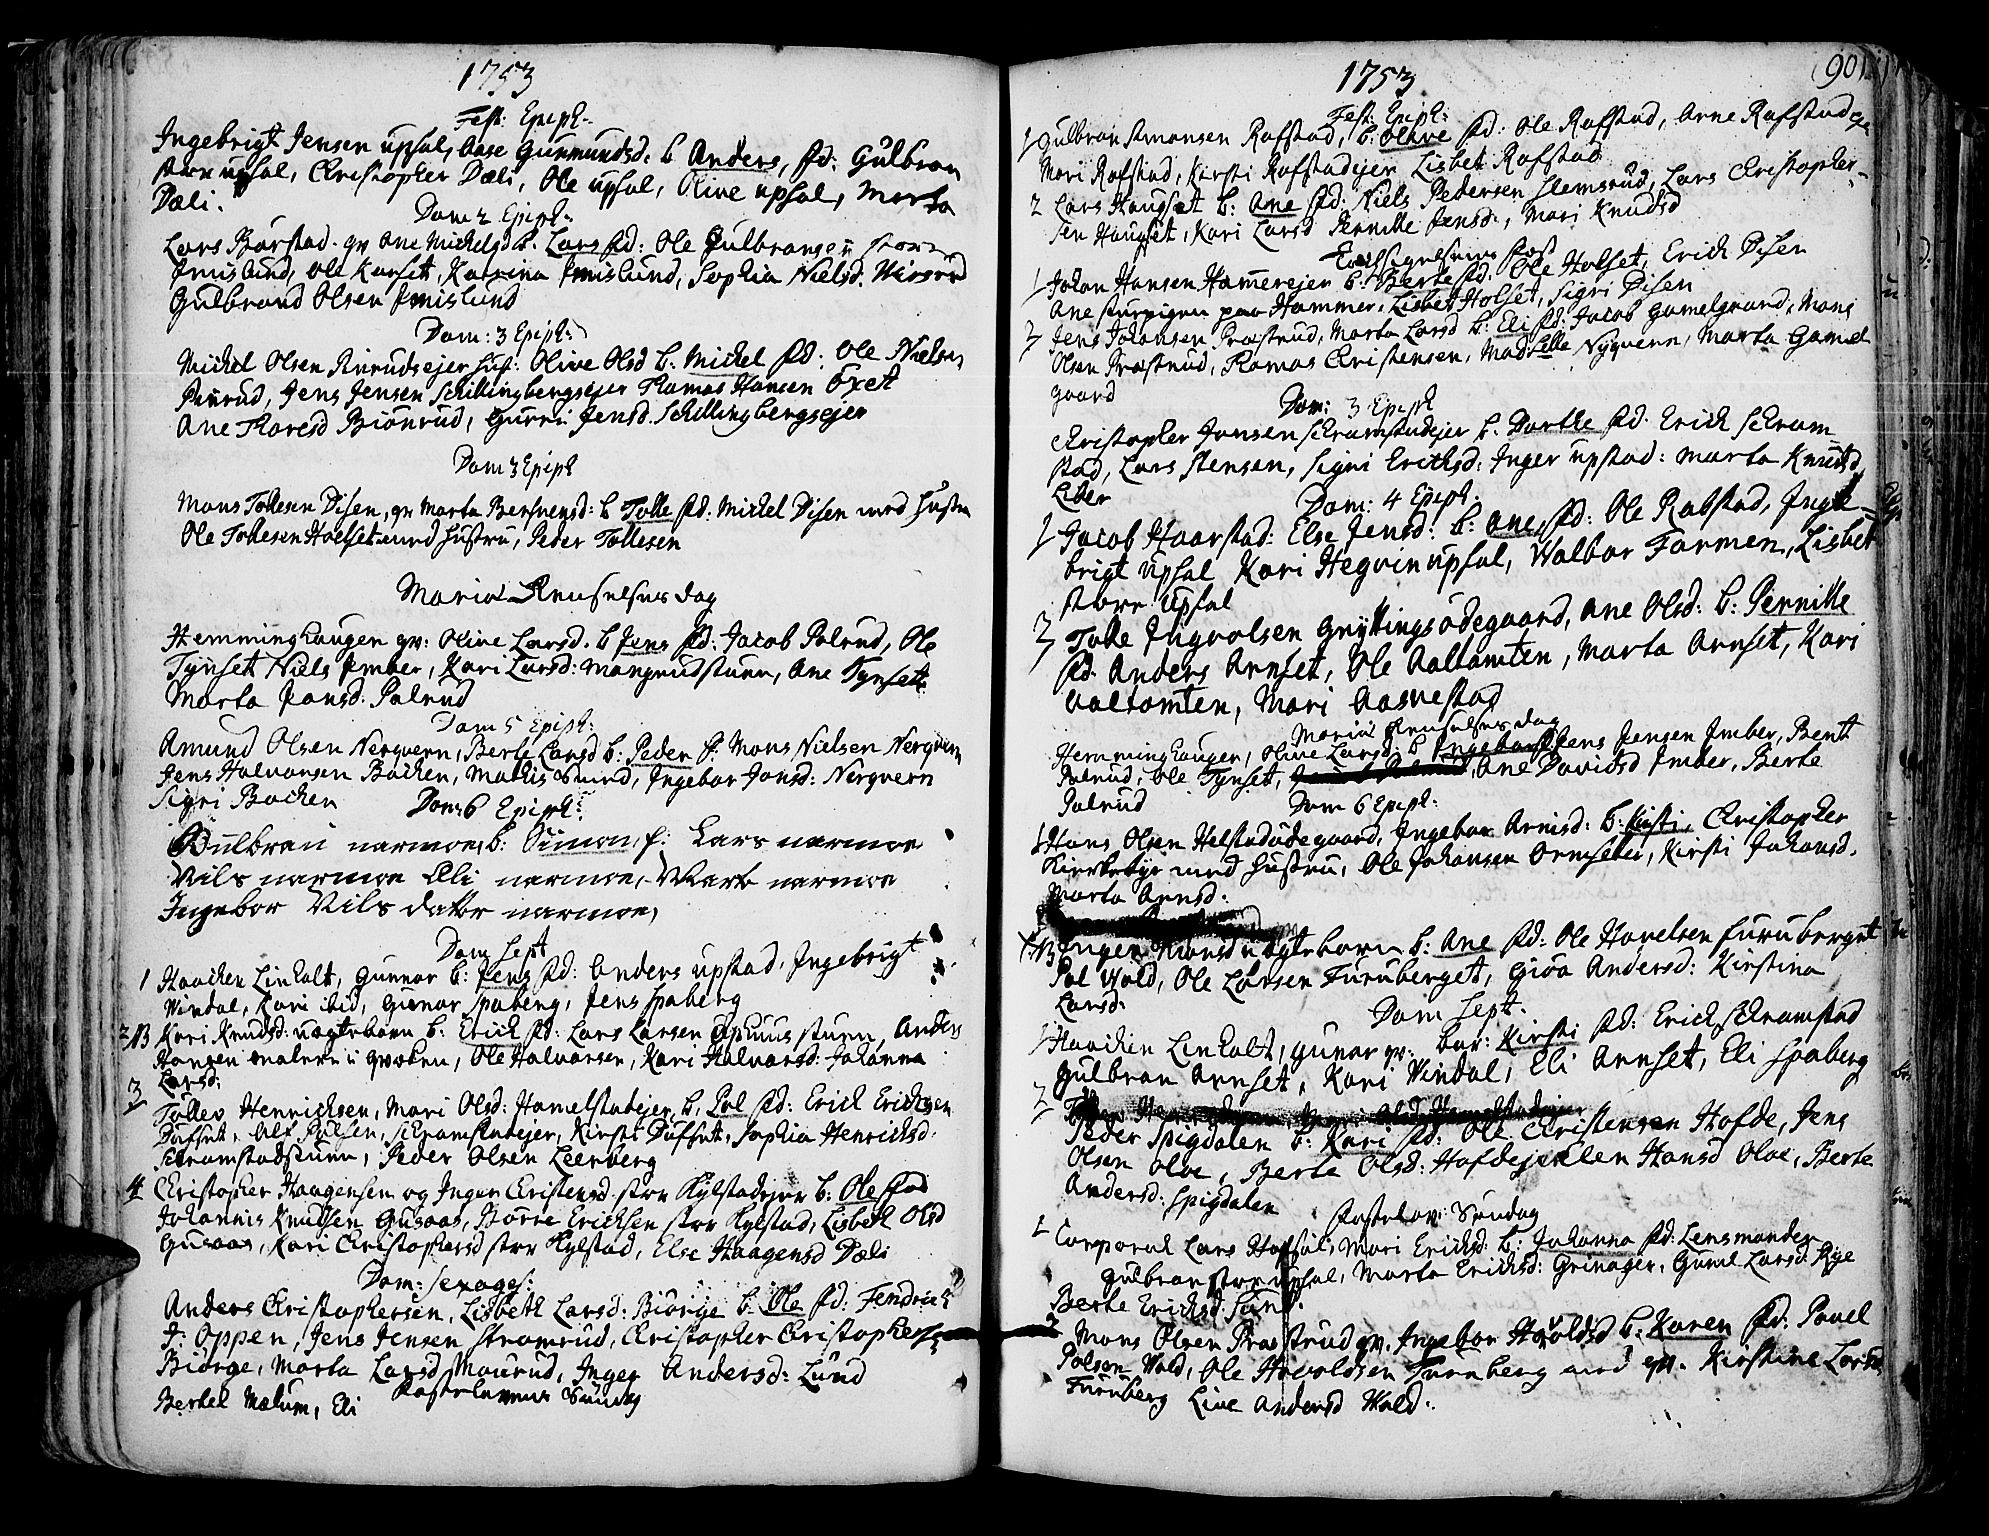 1753
Fest: Epiph:
Ingebrigt Jensen upsal, Aase Gunmundsd. b Anders, fd: Gulbran
store upsal, Christopher Dæli, Ole upsal, Olive upsal, Marta
Dæli.
Dom 2 Epiph:
Lars Barstad. qv Ane Michelsd b. Lars fd: Ole Gulbransen store
Imislund, Ole Kanset, Katrina Imislund, Sophia Nielsd.
Gulbrand Olsen Imislund
Dom: 3 Epiph:
Michel Olsen hust: Olive Olsd b: Michel fd: Ole Nielsen
Jens Jensen Schillingbergsejer Thomas Hansen Oxet
Ane Thoresd Biönrud, Gurri Jensd. Schillingbergsejer
Dom 3 Epiph
Mons Tollesen Disen, qv Marta Berfvensd: b Tolle fd: Michel Disen med hustru
Ole Tollesen Holset med hustru, Peder Tollesen
Mariæ Renselses dag
Hemminghaugen qv: Olive Larsd. b Jens fd: Jacob Palrud, Ole
Tynset Niels Imber, Kari Larsd: Mangrudstuen, Ane Tynset
Marta Jansd. Palrud
Dom 5 Epiph:
Amund Olsen Nerqvern, Berte Larsd b: Peder f: Mons Nielsen Nerqvern
Jens Halvorsen Bachen, Mathis Sund, Ingebor Jonsd: Nerqvern
Sigri Bachen
Dom: 6 Epiph:
Gulbran narmoe, b: Simon, f: Lars narmoe
Nils narmoe Eli narmoe, Mart narmoe
Ingebor Nils dater narmoe,
Dom Sept
1 Haachen Linholt, Gunnor b: Jens fd: Anders upstad, Ingebrigt
Vindal, Kari ibid, Gunor Spaberg, Jens Spaberg
2 NB Kari Knudsd: uægtebarn b: Erich fd: Lars Larsen stuen, Anders
Hansen Ole Halvorsen, Kari Halvorsd: Johanna
Larsd:
3 Tollev Henrichsen, Mari Olsd: Hamelstadejer b. Pol fd: Erich Erichsen
Dufset, Schramstadejer, Kirsti Dufset, Sophia Henrichsd:
Schramstadstuen, Peder Olsen Leerberg
4 Christopher Haagensen og Inger Christensd store Kylstadejer b: Ole fad
Johannis Knudsen Gusaas, Börre Erichsen store Kylstad, Lisbeth Olsd
Gusaas, Kari Christophersd store Kylstad, Else Haagensd Dæli
Dom: Sexages:
Anders Christophersen, Lisbeth Larsd: Biörge b: Ole fd: Fendrich
J: Oppen, Jens Jensen Stramrud, Christopher Christophersen
Biörge, Marta Larsd Maurud, Inger Andersd: Lund
Fastelavens Sundag
Bertel Mælum, Eli
1753
(90)
Fest: Epiph:
1 Gulbran Amonsen Rafstad, b: Olave fd: Ole Rafstad, Arne Rafstadeje
Mari Rafstad, Kirsti Rafstadejer Lisbet Rafstad
2 Lars Haugset b: Ane fd: Niels Pedersen Slemsrud, Lars Christopher-
sen Haugset, Kari Larsd Pernille Jensd:, Mari Knudsd
1 Johan Hansen Hamerejer b: Berte fd: Ole Holset, Erich Disen
Ane sturpigen paa Hammer, Lisbet Holset, Sigri Disen
2 Jens Johansen Præstrud, Marta Larsd b: Eli fd: Jacob Gamelgaard, Mons
Olsen Præstrud, Thomas Christensen, Nyqvern, Marta Gamel
gaard
Dom: 3 Epiph
Christopher Jensen Schramstadejer b. Dorthe fd. Erich Schram-
stad, Lars Stensen, Sigri Erichsd: Inger upstad: Marta Knudsd
Dom: 4 Epiph:
1 Jacob Haarstad: Else Jensd: b: Ane, fd: Ole Rabstad, Inge-
brigt upsal Kari Hegvin upsal, Walbor Farmen, Lisbet
store upsal
2 Tolle Ingvolsen Gryttingsödegaard, Ane Olsd: b: Pernille
fd. Anders Arnset, Ole Aaltomten, Marta Arnset, Kari
Aaltomten, Mari Aasvestad
Mariæ Renselses dag
Hemminghaugen, Olive Larsd: b Ingebor fd: Jens Jensen Imber, Bent
Palrud, Ole Tynset, Ane Davidsd Imber, Berte
Palrud
Dom 6 Epiph:
1 Hans Olsen Helstadödegaard, Ingebor Arnisd: b: Kirsti, Christopher
Kirkebye med hustru, Ole Johansen Ormseter, Kirsti Johansd.
Marta Arnsd.
NB Inger Hansd uægtebarn b: Ane fd: Ole Havelsen Furuberget
Pol Wold, Ole Larsen Furuberget, Giöa Andersd: Kirstina
Larsd:
Dom Sept.
1 Haachen Linholt, Gunor qv: bar: Kirsti fd: Erich Schramstad
Gulbran Arnset, Kari Vindal, Eli Arnset, Eli Spaberg
2
Peder Spigdalen b: Kari fd: Ole Christensen Hofde, Jens
Olsen Oloe, Berte Olsd: Hofdeje Hansd Oloe, Berte
Andersd: Spigdalen
Fastelav: Sundag
1 Corporal Lars Hofsal, Mari Erichsd: b: Johanna fd: Lensmanden
Gulbran store upsal, Marta Erichsd: Grinager, Gunil Larsd: Rye
Berte Erichsd: Sund.
2 Mons Olsen Præstrud qv. Ingebor Havoldsd b: Karen fd: Pouel
Polsen Wold, Ole Havoldsen Furuberg med qv. Kirstine Larsd
Furuberg Live Andersd Wold.